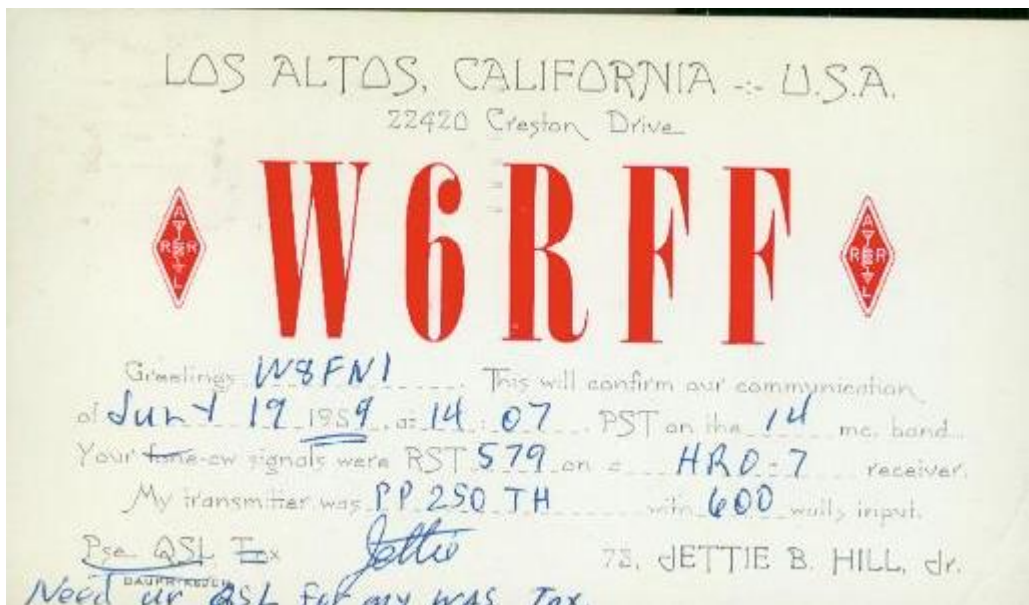 LOS ALTOS, CALIFORNIA -:- U.S.A.
22420 Creston Drive
W6RFF
ARRL
ARRL
Greetings W8FNI. This will confirm our communication
of 19 1959, at 14:07 PST on the 14 mc. band.
Your fone-cw signals were RST 579 on a HRO-7 receiver.
My transmitter was PP 250 TH with 600 watts input.
Pse QSL Tnx Jettie 73, JETTIE B. HILL, Jr.
Need ur QSL for my WAS. Tnx.